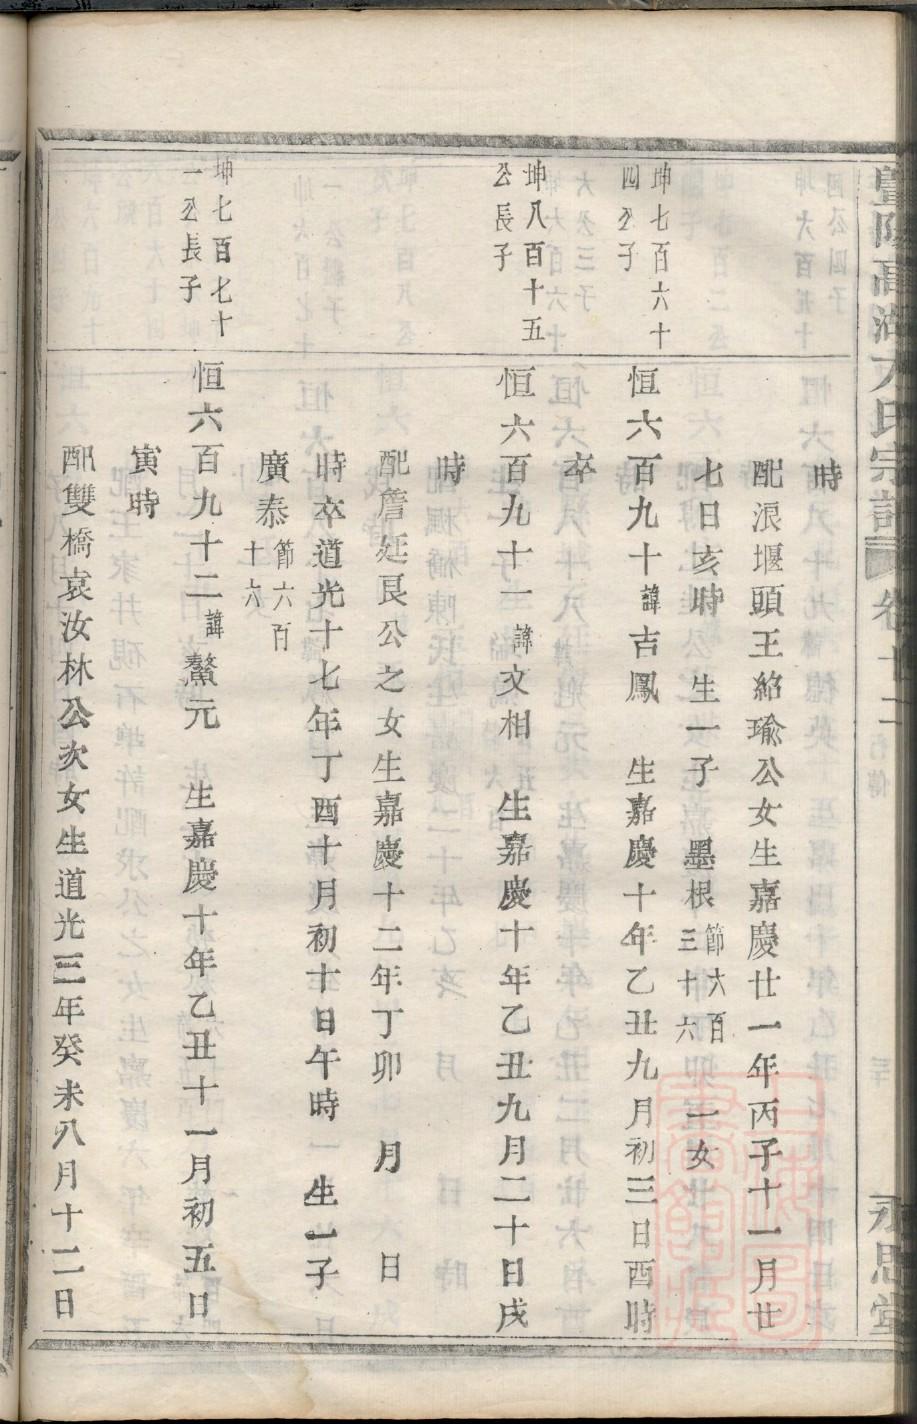 暨陽高湖方氏宗譜 卷十二 永思堂
時
配浪堰頭王紹瑜公女生嘉慶廿一年丙子十一月廿
七日亥時 生一子 墨根 節六百三十六 一女
坤七百六十四公子
恒六百九十 諱 吉鳳 生嘉慶十年乙丑九月初三日酉時
卒
坤八百十五公長子
恒六百九十一 諱 文相 生嘉慶十年乙丑九月二十日戌
時
配詹廷艮公之女生嘉慶十二年丁卯 月 日
時卒道光十七年丁酉十月初十日午時 生一子
廣泰 節六百十六
坤七百七十一公長子
恒六百九十二 諱 鰲元 生嘉慶十年乙丑十一月初五日
寅時
配雙橋袁汝林公次女生道光三年癸未八月十二日